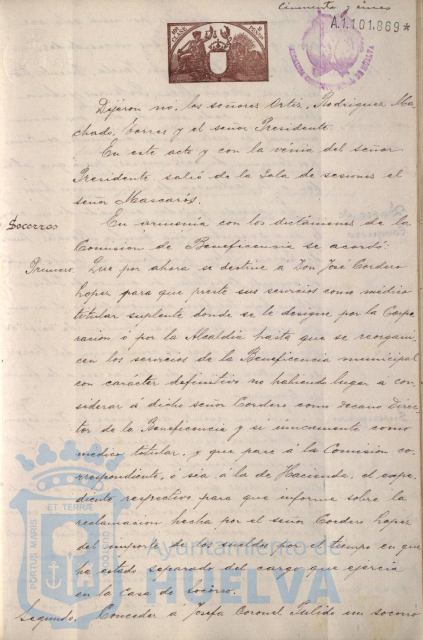 Cincuenta y cinco
A.1.101.869*
Dijeron no, los señores Ortiz, Rodríguez Ma-
chado, Torres y el señor Presidente.
En este acto y con la vénia del señor
Presidente salió de la Sala de sesiones el
señor Mascarós.
Socorros
En armonía con los dictámenes de la
Comisión de Beneficencia se acordó:
Primero. Que por ahora se destine á Don José Cordero
Lopez para que preste sus servicios como médico
titular suplente donde se le designe por la Corpo-
racion ó por la Alcaldía hasta que se reorgani-
cen los servicios de la Beneficencia municipal
con carácter definitivo no habiendo lugar a con-
siderar á dicho señor Cordero como decano Direc-
tor de la Beneficencia y si únicamente como
médico titular, y que pase á la Comisión co-
rrespondiente, ó sea á la de Hacienda, el expe-
diente respectivo para que informe sobre la
reclamacion hecha por el señor Cordero Lopez
del importe de los sueldos por el tiempo en que
ha estado separado del cargo que ejercia
en la Casa de socorro.
Segundo. Conceder á Josefa Coronel Pulido un socorro
PORTUS MARIS ET TERRÆ CUSTODIA
Ayuntamiento de
HUELVA